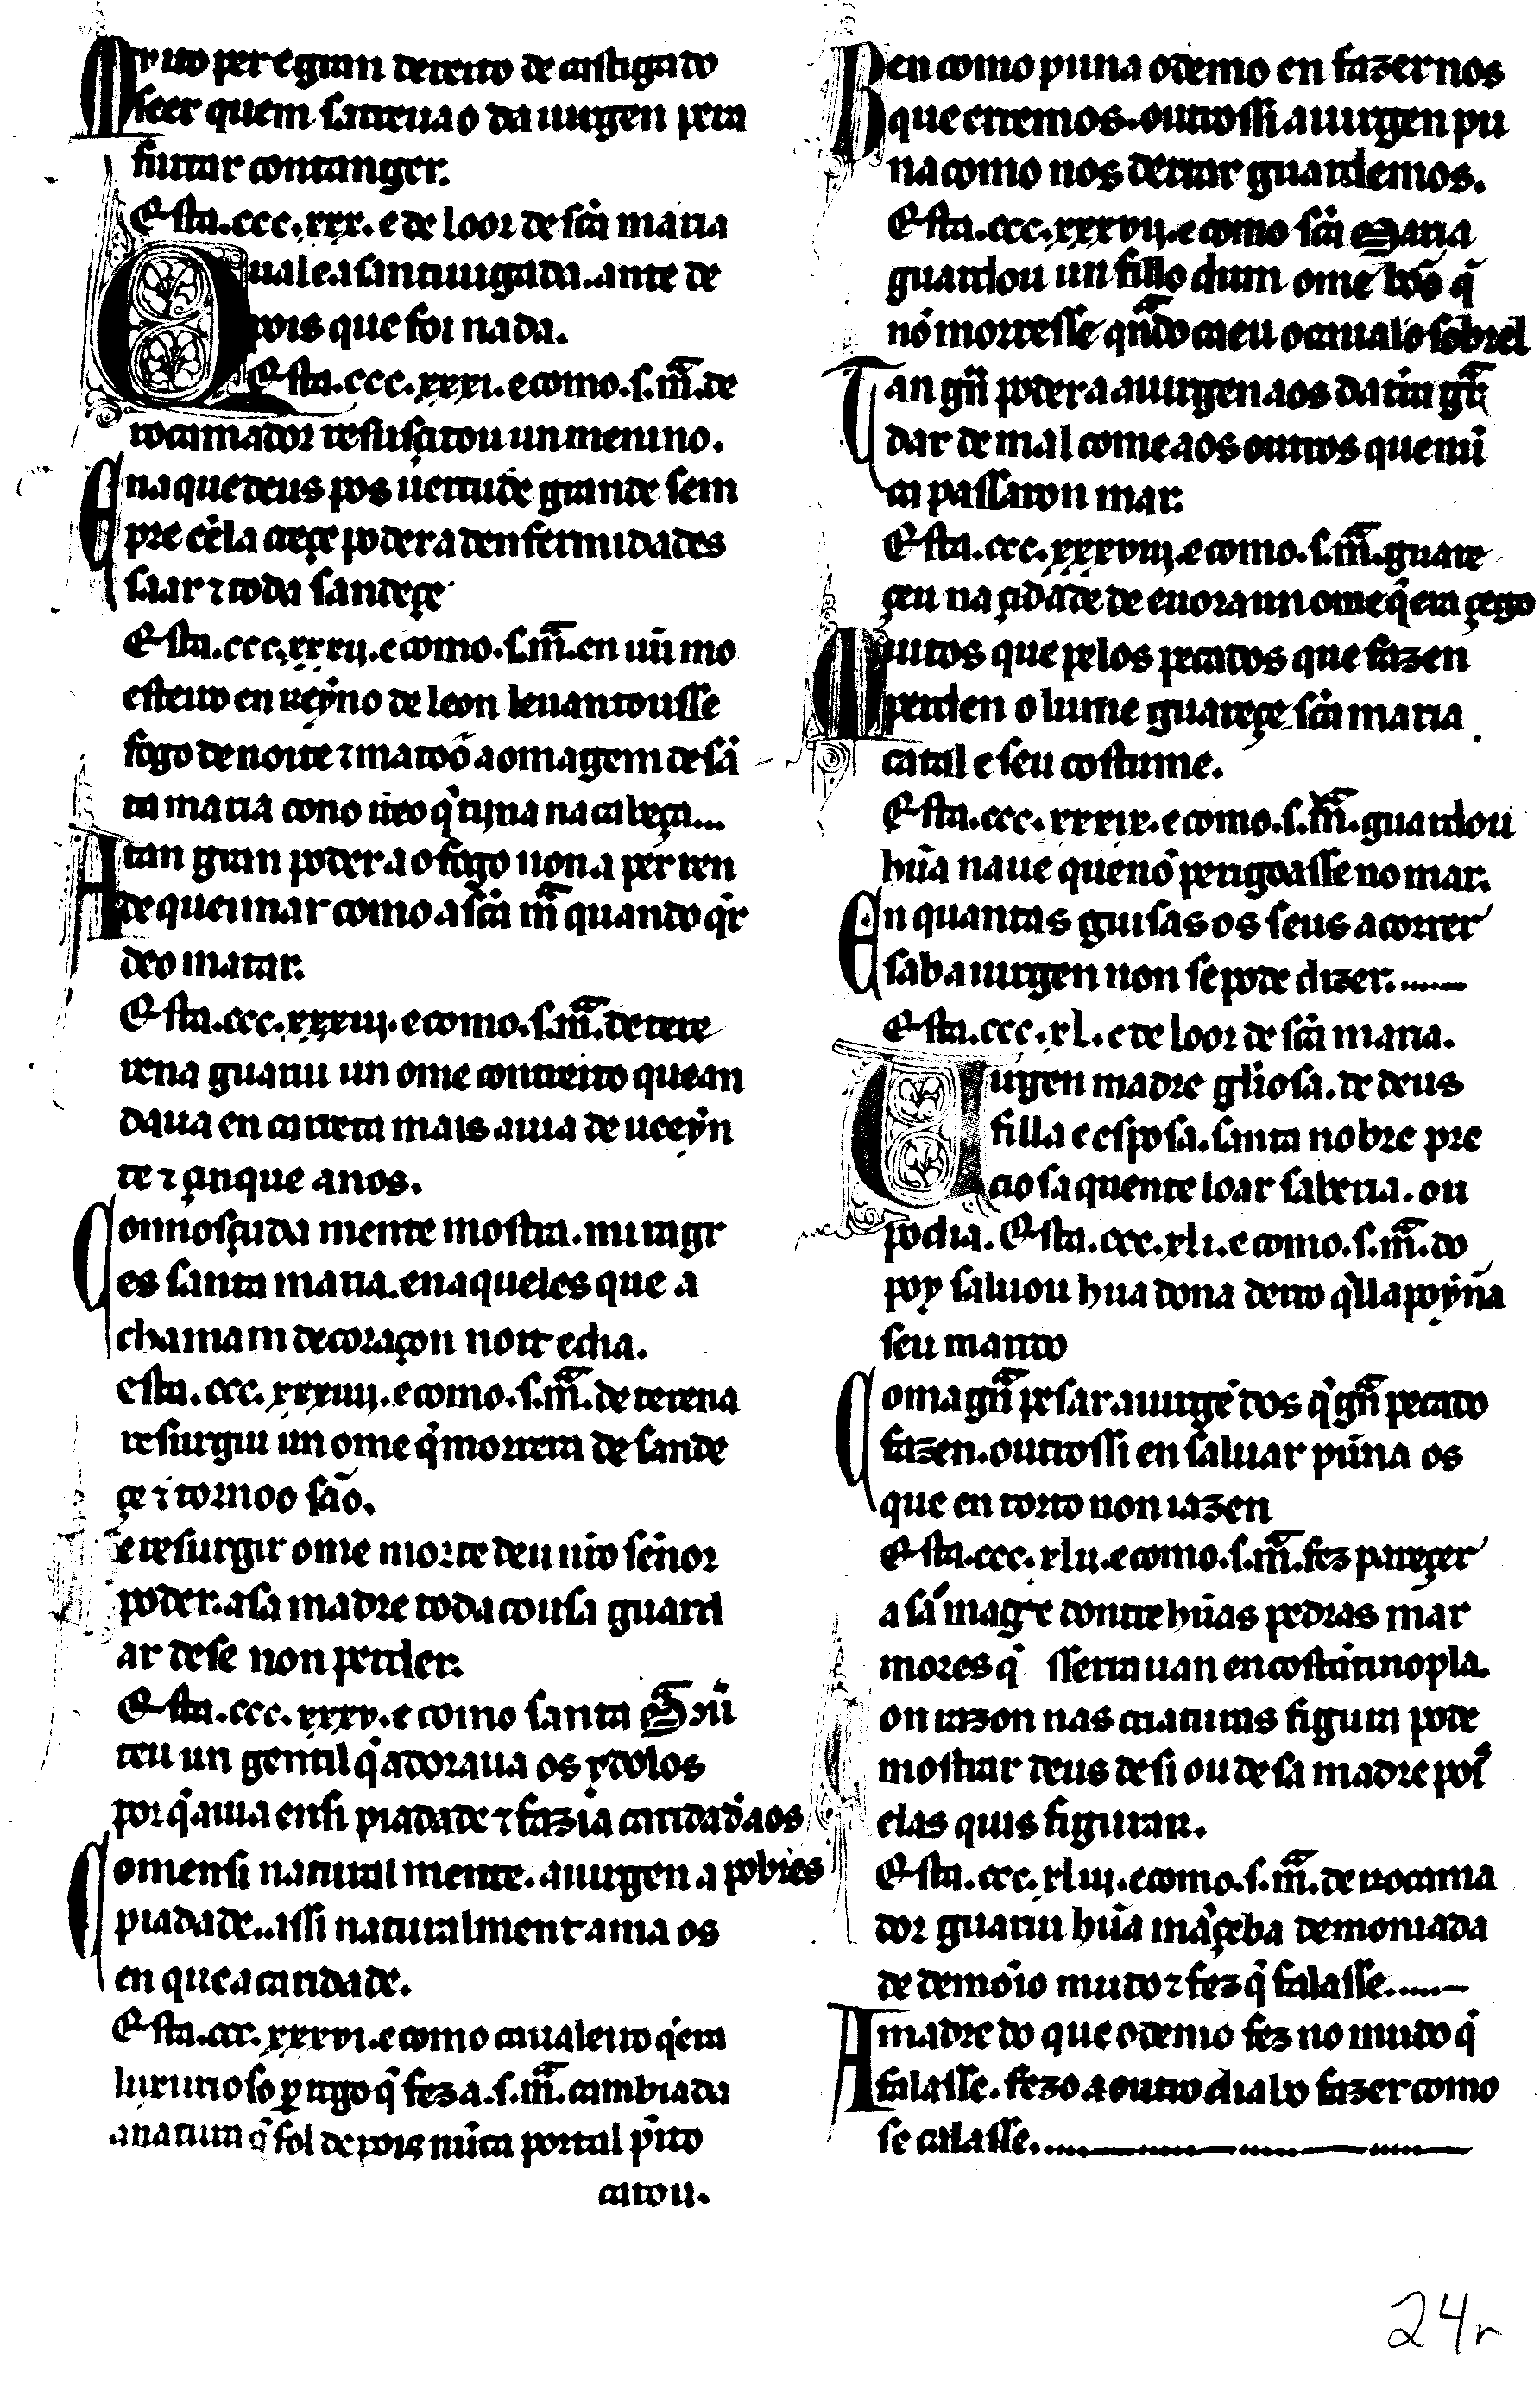 Muito per e gran dereito de castigado
seer quem s atreua o da uirgen pera
furtar contanger.
Esta .ccc.xxx. e de loor de scã maria
Qual e a santiuigada. ante de
pois que foi nada.
Esta .ccc.xxxi. e como .s.mã. de
rocamador resusçitou un menino.
Ena que deus pos uertude grande sem
pre ẽ ela creçe poder a d enfermidades
saar ⁊ toda sandeçe
Esta .ccc.xxxii. e como .s.mã. en uũ mo
esteiro en reyno de leon leuantousse
fogo de noite ⁊ matoo a omagem de sã
ta maria cono ueo q̃ tijna na cabeça...
Atan gran poder a o fogo non a per ren
de queimar como a scã mã quando q̃r
deo matar.
Esta .ccc.xxxiii. e como .s.mã. de tere
rena guariu un ome contreito que an
daua en carreta mais auia de ueyn
te ⁊ çinque anos.
Connosçuda mente mostra. miragr
es santa maria. en aqueles que a
chamam de coraçon nort echa.
esta .ccc.xxxiiii. e como .s.mã. de terena
resurgiu un ome q̃ morrera de sande
çe ⁊ tornoo são.
De resurgir ome morte deu nr̃o señor
poder. a sa madre toda cousa guard
ar de se non perder.
Esta .ccc.xxxv. e como santa M. cũ
teu un gentil q̃ adoraua os ydolos
por q̃ auia en si piadade ⁊ fazia caridad aos
Com en si natural mente. a uirgen a pobres
piadade.. assi naturalment ama os
en que a caridade.
Esta .ccc.xxxvi. e como caualeiro q̃ era
luxurioso p̱ rogo q̃ fez a .s.mã. cambiada
a natura q̃ sol depois nũca por tal p̃ito
catou.
Ben como puna o demo en fazer nos
que erremos. outrossi a uirgen pu
na como nos d errar guardemos.
Esta .ccc.xxxvii. e como scã Maria
guardou un fillo dum ome bõo q̃
nõ morresse qñdo caeu o caualo sobrel
Tan grã poder a a uirgen aos da t̃ra gũr
dar de mal come aos outros que mũ
ca passaron mar.
Esta .ccc.xxxviii. e como .s.mã. guare
çeu na çidade de euora un ome q̃ era çego
Muitos que pelos pecados que fazen
perden o lume guareçe scã maria
ca tal e seu costume.
Esta .ccc.xxxix. e como .s.mã. guardou
hũa naue que nõ perigoasse no mar.
En quantas guisas os seus acorrer
sab a uirgen non se pode dizer.......
Esta .ccc.xl. e de loor de scã maria.
Uirgen madre gl̃iosa. de deus
filla e esposa. santa nobre pre
ciosa quen te loar saberia. ou
podia. Esta .ccc.xli. e como .s.mã. do
poy saluou hua dona derro q̃ lla poỹna
seu marido
Com a grã pesar. a uirgẽ dos q̃ grã pecado
fazen. outrossi en saluar puña os
que en torto non iazen
Esta .ccc.xlii. e como .s.mã. fez pareçer
a sã magẽ d ontre hũas pedras mar
mores q̃ sserrauan en costantinopla.
Con razon nas criaturas figura pode
mostrar deus de si ou de sa madre poi
elas quis figuran.
Esta .ccc.xliii. e como .s.mã. de rocama
dor guariu hũa mãçeba demoniada
de demõio mudo ⁊ fez q̃ falasse......
A madre do que o demo fez no mudo q̃
falasse. fezo a outro diabo fazer como
se calasse..............
24r